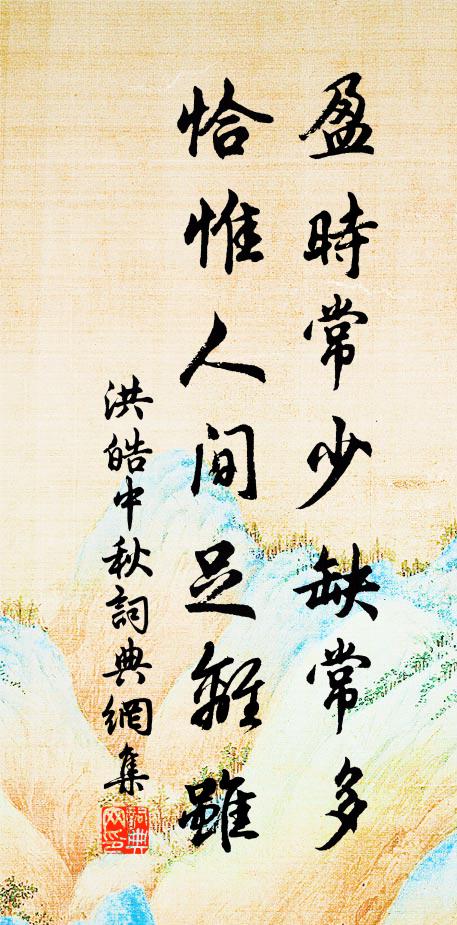 盈時常少缺常多
恰惟人間足離雖
洪皓中秋詞典網集
詞典
网印